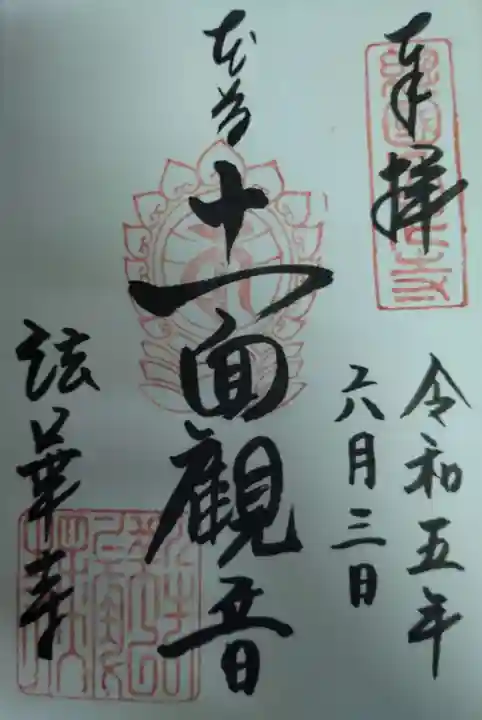 奉拝
令和五年
六月三日
本尊
十一面観音
法華寺